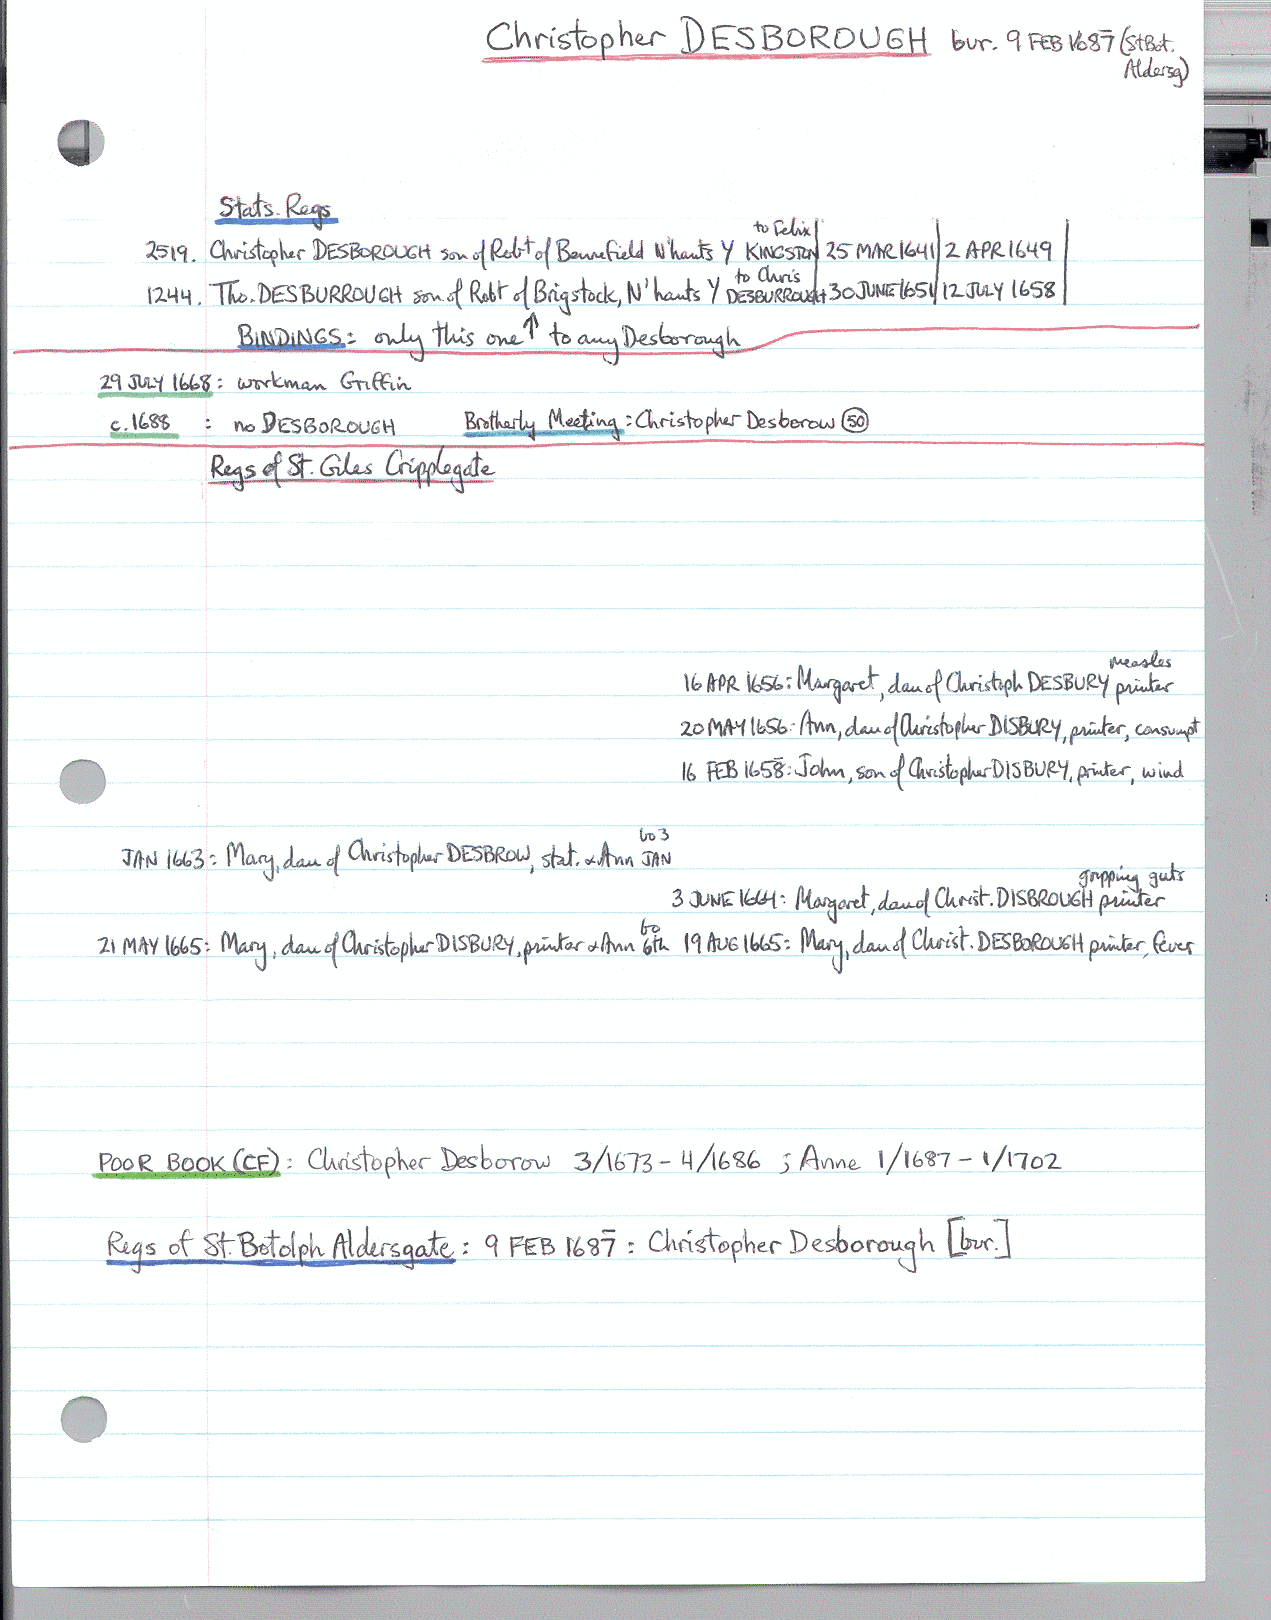 Christopher DESBOROUGH bur. 9 FEB 1687 (St Bot.
Aldersg)
Stats. Regs
to Felix
2519. Christopher DESBOROUGH son of Robt of Bennefield N'hants Y KINGSTON 25 MAR 1641 2 APR 1649
to Chris
1244. Tho. DESBURROUGH son of Robt of Brigstock, N'hants Y DESBURROUGH 30 JUNE 1651 12 JULY 1658
BINDINGS: only this one ↑ to any Desborough
29 JULY 1668: workman Griffin
c.1688 : no DESBOROUGH Brotherly Meeting: Christopher Desborow 50
Regs of St. Giles Cripplegate
measles
16 APR 1656: Margaret, dau of Christoph DESBURY printer
20 MAY 1656: Ann, dau of Christopher DISBURY, printer, consumpt
16 FEB 1658: John, son of Christopher DISBURY, printer, wind
bo 3
JAN 1663: Mary, dau of Christopher DESBROW, stat. & Ann JAN
gripping guts
3 JUNE 1664: Margaret, dau of Christ. DISBROUGH printer
bo
21 MAY 1665: Mary, dau of Christopher DISBURY, printer & Ann 6th 19 AUG 1665: Mary, dau of Christ. DESBOROUGH printer, fever
POOR BOOK (CF): Christopher Desborow 3/1673 - 4/1686 ; Anne 1/1687 - 1/1702
Regs of St. Botolph Aldersgate: 9 FEB 1687: Christopher Desborough [bur.]